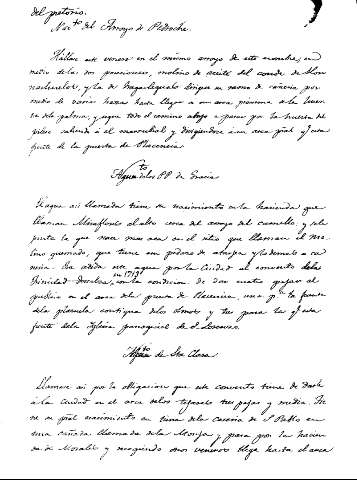 del pretorio.
Nac.to del Arroyo de Pedroche.
Hállase este venero en el mismo arroyo de este nombre, en
medio de las dos posesiones, molino de aceite del conde de Hor
nachuelos, y la de dirige su ramo de cañería por
medio de varias hazas hasta llegar a un arca próxima a la huer
ta de la palma, y sigue todo el camino abajo a pasar por la huerta del
saliendo al y dirigiéndose a un arca pral q.e esta
frente de la puerta de Placencia
Agua de los PP. de Gracia
El agua así llamada tiene su nacimiento en la hacienda que
llaman Miraflores el alto cerca del arroyo del camello, y se le
junta la que nace mas en el sitio que llaman el Mo
lino quemado, que tiene un pedazo de atarjea y lo demás a ca
ñería. Fue cedida esta agua por la Ciudad al convento de los
en 1719
Trinidad Descalzos, con la condicion de dar cuatro pajas al
público en el arca de la puerta de Placencia, una p.a la fuente
de la plazuela contigua de los Olmos y tres para la q.e esta
frente de la Iglesia parroquial de S. Lorenzo.
Agua de Sta Clara
Llamase así por la obligacion que este convento tiene de darle
a la Ciudad en el arca de los tres pajas y media. Tie
ne su pral nacimiento en tierra del de S. Pablo en
una cañada llamada de la Monja y pasa por la hacien
da de Morales y recogiendo otros veneros llega hasta el arca